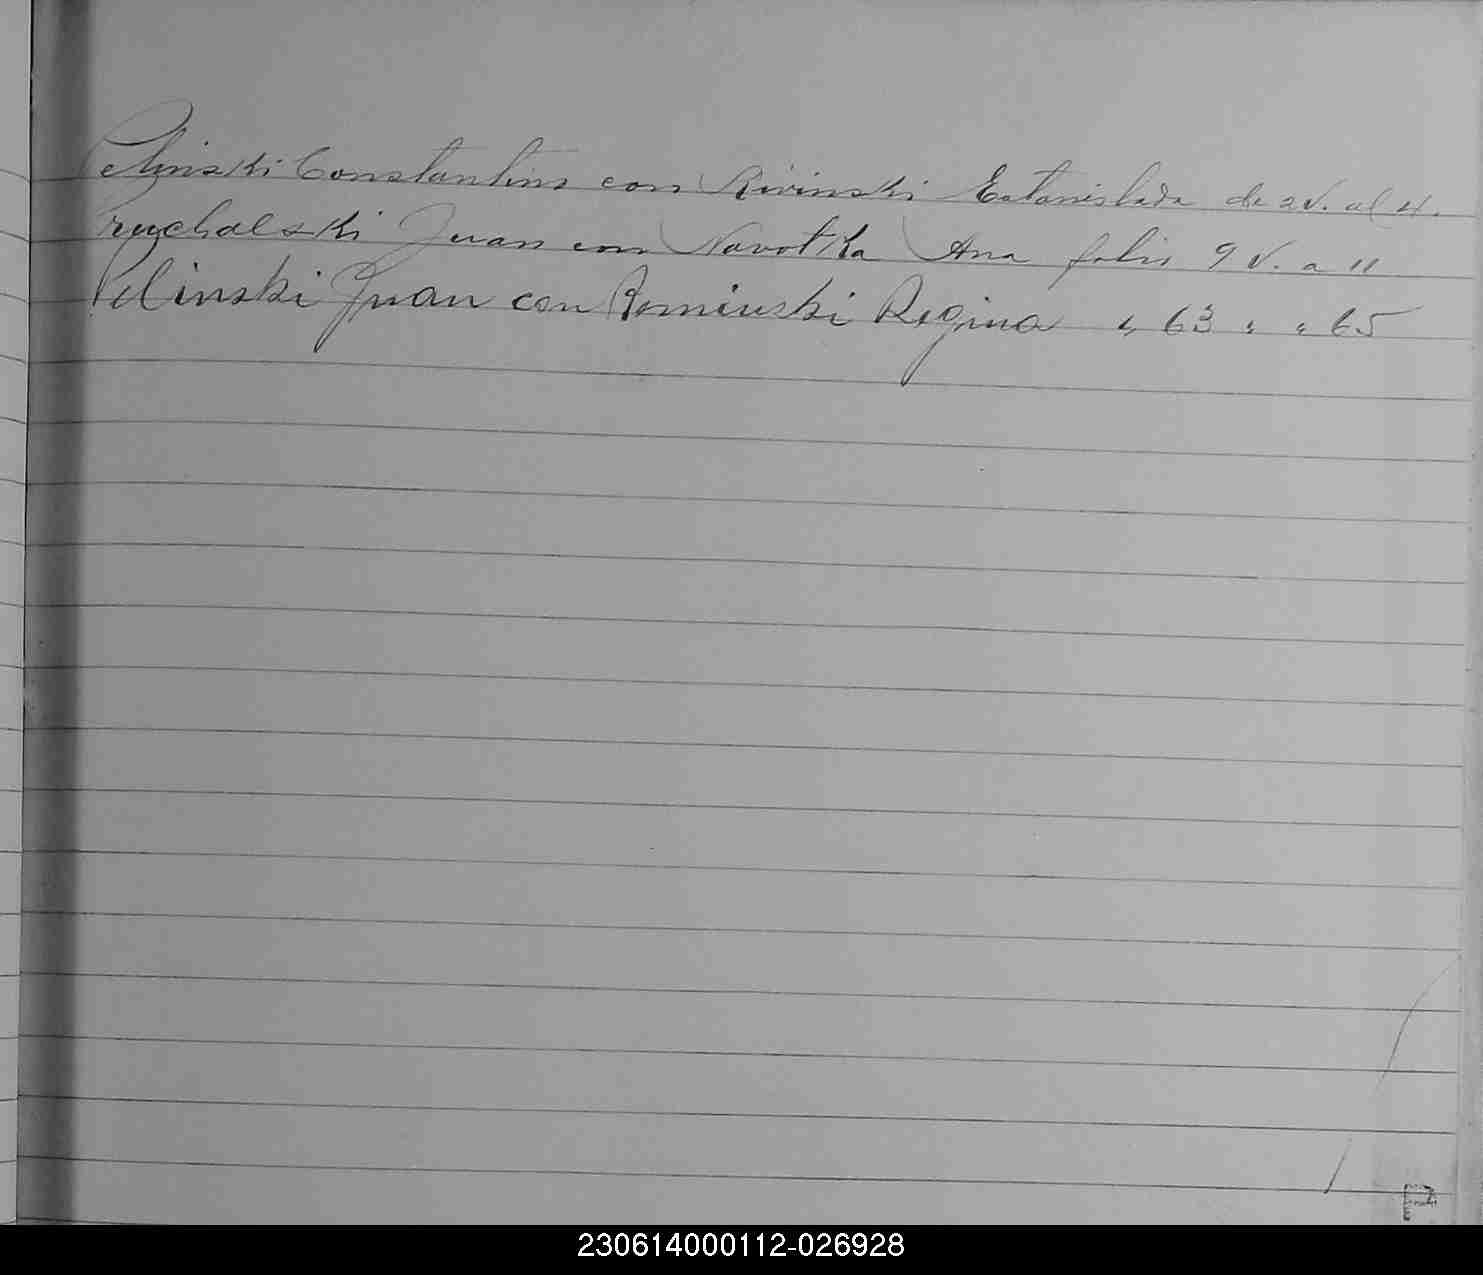 Pelinski Constantino con Rivinski Estanislada de 2 v. al 4.
Pruchalski Juan con Novotka Ana folio 9 v. a 11
Pelinski Juan con Rominski Regina " 63 " " 65
P
230614000112-026928